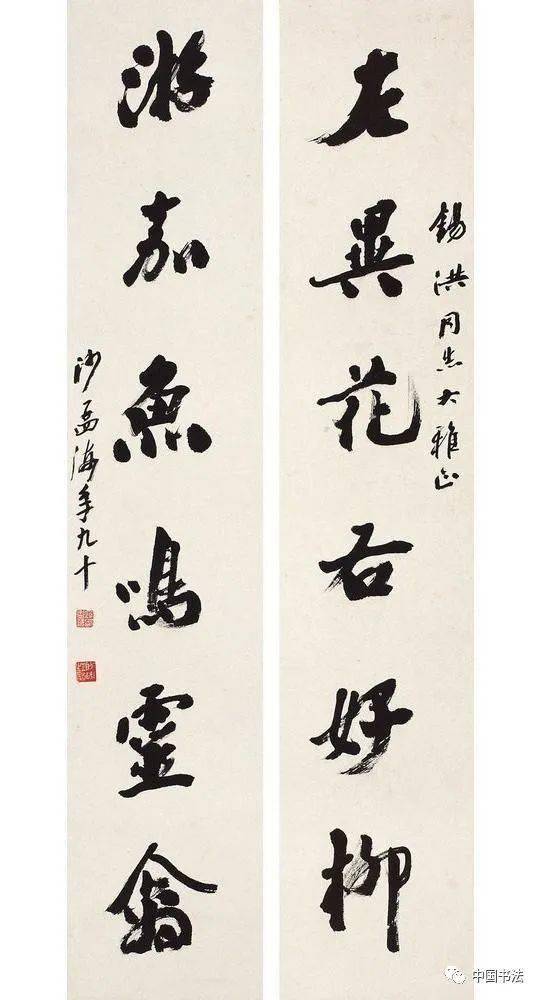 錫洪同志大雅正
左異花右好柳
游嘉魚鳴靈禽
沙孟海年九十
中国书法